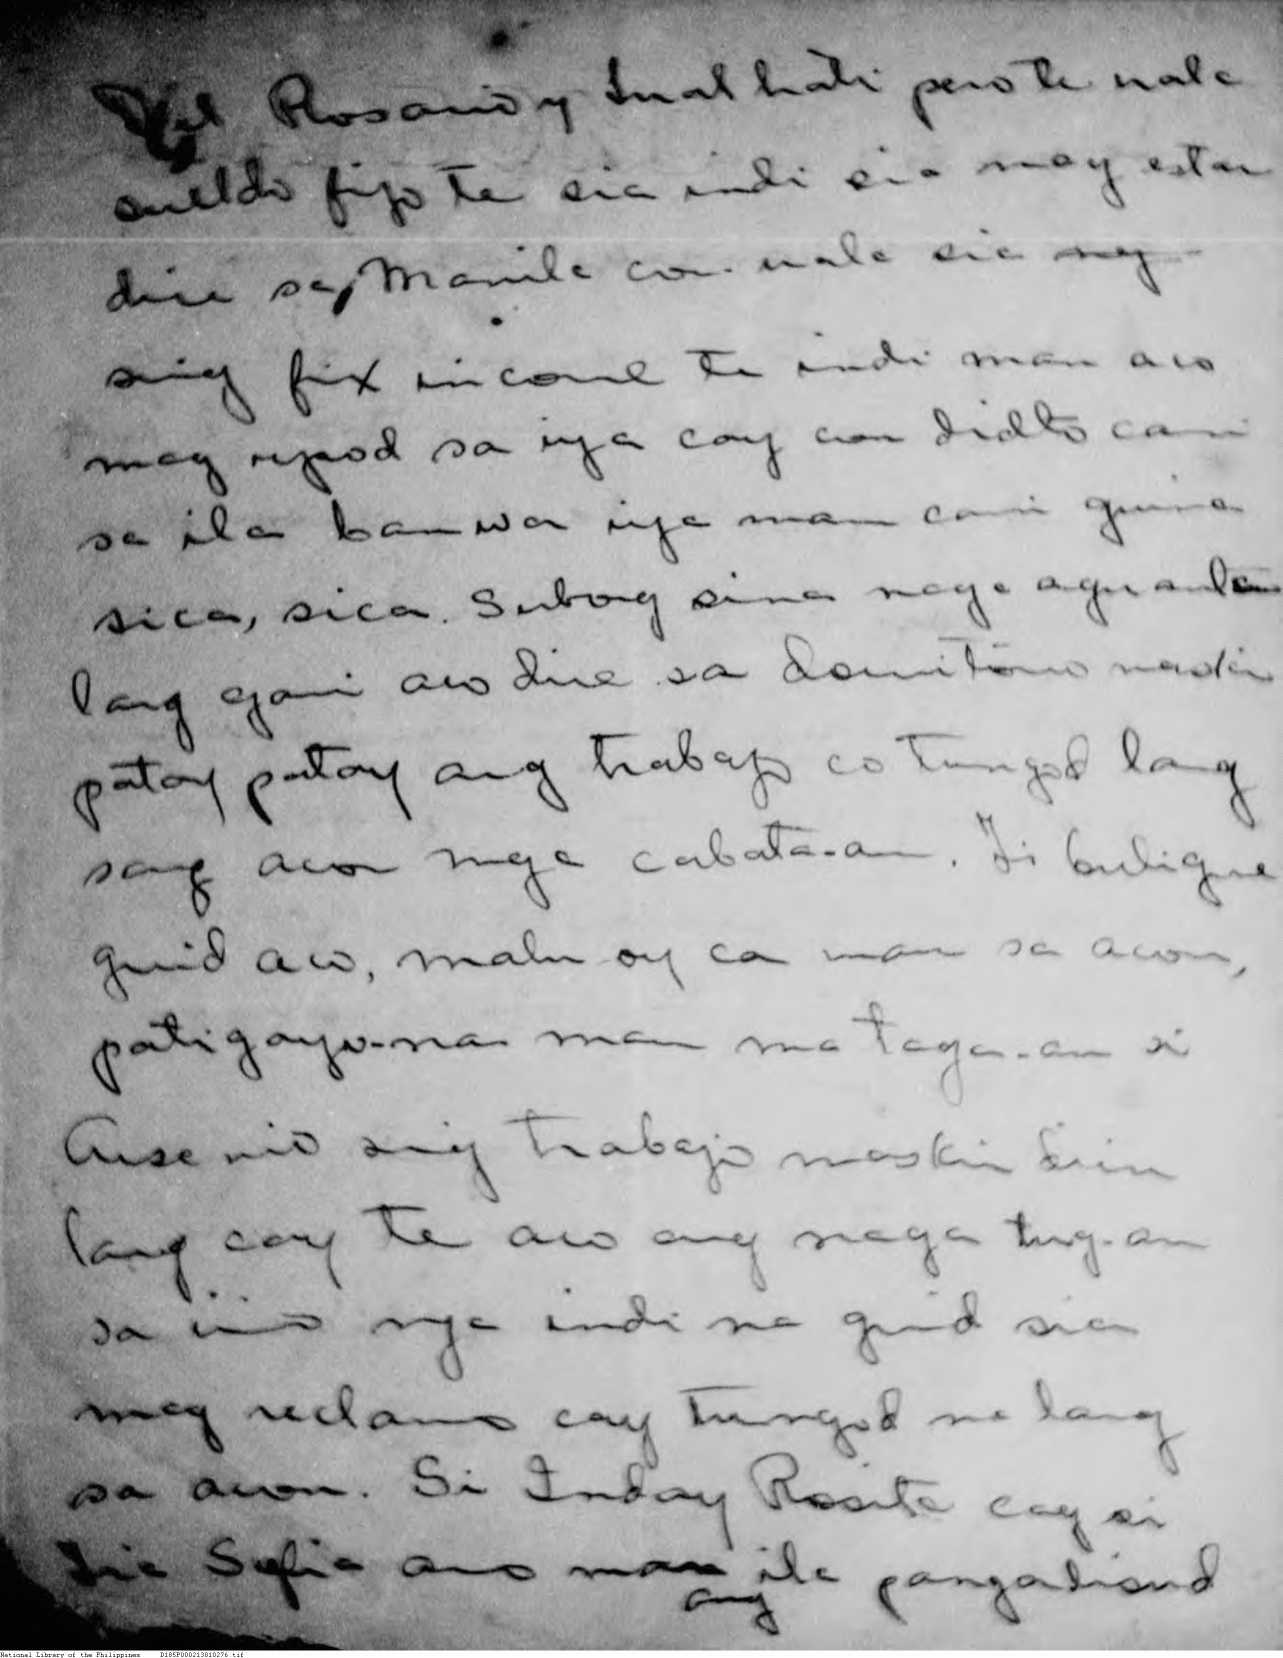 del Rosario y Inalhati pero te wala
sueldo fijo te sia indi sia mag estar
diri sa Manila con wala sia ng
sing fix income te indi man aco
mag upod sa iya cay con didto cami
sa ila banwa iya man cami guina
sica, sica. Subong sina naga aguanta
lang gani aco diri sa dormitorio maskin
patay patay ang trabajo co tungod lang
sang acon mga cabata-an. Ti buligue
guid aco, maluoy ca man sa acon,
patigayo-na man mataga-an si
Arsenio sing trabajo maskin diin
lang cay te aco ang naga tug-an
sa imo nga indi na guid sia
mag reclamo cay tungod na lang
sa acon. Si Inday Rosita cag si
Tia Sofia ano man ang ila pangabisud
National Library of the Philippines D185P000213810276.tif